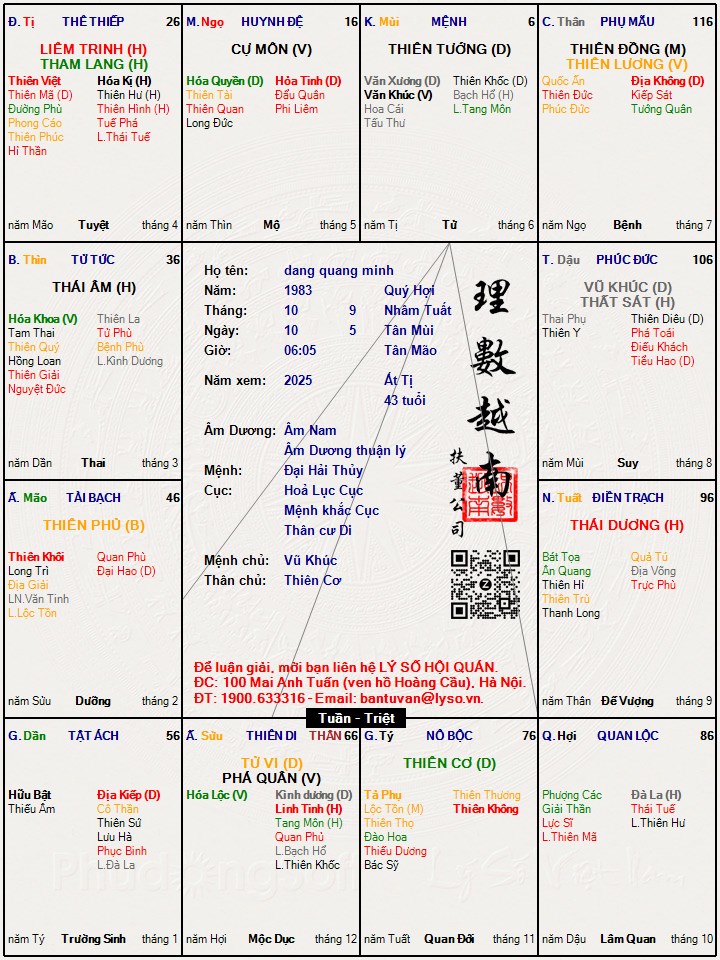 Đ. Tị THÊ THIẾP 26
LIÊM TRINH (H)
THAM LANG (H)
Thiên Việt Hóa Kị (H)
Thiên Mã (D) Thiên Hư (H)
Đường Phù Thiên Hình (H)
Phong Cáo Tuế Phá
Thiên Phúc L.Thái Tuế
Hỉ Thần
năm Mão Tuyệt tháng 4
M. Ngọ HUYNH ĐỆ 16
CỰ MÔN (V)
Hóa Quyền (D) Hỏa Tinh (D)
Thiên Tài Đẩu Quân
Thiên Quan Phi Liêm
Long Đức
năm Thìn Mộ tháng 5
K. Mùi MỆNH 6
THIÊN TƯỚNG (D)
Văn Xương (D) Thiên Khốc (D)
Văn Khúc (V) Bạch Hổ (H)
Hoa Cái L.Tang Môn
Tấu Thư
năm Tị Tử tháng 6
C. Thân PHỤ MẪU 116
THIÊN ĐỒNG (M)
THIÊN LƯƠNG (V)
Quốc Ấn Địa Không (D)
Thiên Đức Kiếp Sát
Phúc Đức Tướng Quân
năm Ngọ Bệnh tháng 7
B. Thìn TỬ TỨC 36
THÁI ÂM (H)
Hóa Khoa (V) Thiên La
Tam Thai Tử Phù
Thiên Quý Bệnh Phù
Hồng Loan L.Kình Dương
Thiên Giải
Nguyệt Đức
năm Dần Thai tháng 3
Họ tên: dang quang minh
Năm: 1983 Quý Hợi
Tháng: 10 9 Nhâm Tuất
Ngày: 10 5 Tân Mùi
Giờ: 06:05 Tân Mão
Năm xem: 2025 Ất Tị
43 tuổi
Âm Dương: Âm Nam
Âm Dương thuận lý
Mệnh: Đại Hải Thủy
Cục: Hoả Lục Cục
Mệnh khắc Cục
Thân cư Di
Mệnh chủ: Vũ Khúc
Thân chủ: Thiên Cơ
理數越南
扶董公司
Để luận giải, mời bạn liên hệ LÝ SỐ HỘI QUÁN.
ĐC: 100 Mai Anh Tuấn (ven hồ Hoàng Cầu), Hà Nội.
ĐT: 1900.633316 - Email: bantuvan@lyso.vn.
Tuần - Triệt
T. Dậu PHÚC ĐỨC 106
VŨ KHÚC (D)
THẤT SÁT (H)
Thai Phụ Thiên Diêu (D)
Thiên Y Phá Toái
Điếu Khách
Tiểu Hao (D)
năm Mùi Suy tháng 8
Ấ. Mão TÀI BẠCH 46
THIÊN PHỦ (B)
Thiên Khôi Quan Phù
Long Trì Đại Hao (D)
Địa Giải
LN.Văn Tinh
L.Lộc Tồn
năm Sửu Dưỡng tháng 2
N. Tuất ĐIỀN TRẠCH 96
THÁI DƯƠNG (H)
Bát Tọa Quả Tú
Ân Quang Địa Võng
Thiên Hỉ Trực Phù
Thiên Trù
Thanh Long
năm Thân Đế Vượng tháng 9
G. Dần TẬT ÁCH 56
Hữu Bật Địa Kiếp (D)
Thiếu Âm Cô Thần
Thiên Sứ
Lưu Hà
Phục Binh
L.Đà La
năm Tý Trường Sinh tháng 1
Ấ. Sửu THIÊN DI THÂN 66
TỬ VI (D)
PHÁ QUÂN (V)
Hóa Lộc (V) Kình dương (D)
Linh Tinh (H)
Tang Môn (H)
Quan Phủ
L.Bạch Hổ
L.Thiên Khốc
năm Hợi Mộc Dục tháng 12
G. Tý NÔ BỘC 76
THIÊN CƠ (D)
Tả Phụ Thiên Thương
Lộc Tồn (M) Thiên Không
Thiên Thọ
Đào Hoa
Thiếu Dương
Bác Sỹ
năm Tuất Quan Đới tháng 11
Q. Hợi QUAN LỘC 86
Phượng Các Đà La (H)
Giải Thần Thái Tuế
Lực Sĩ L.Thiên Hư
L.Thiên Mã
năm Dậu Lâm Quan tháng 10